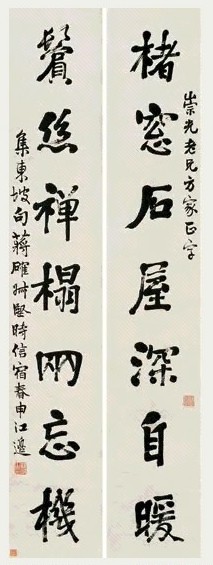 崇光老兄方家正字
楮窓石屋深自暖
鬢絲禪榻兩忘機
集東坡句蔣確叔堅時信宿春申江邊